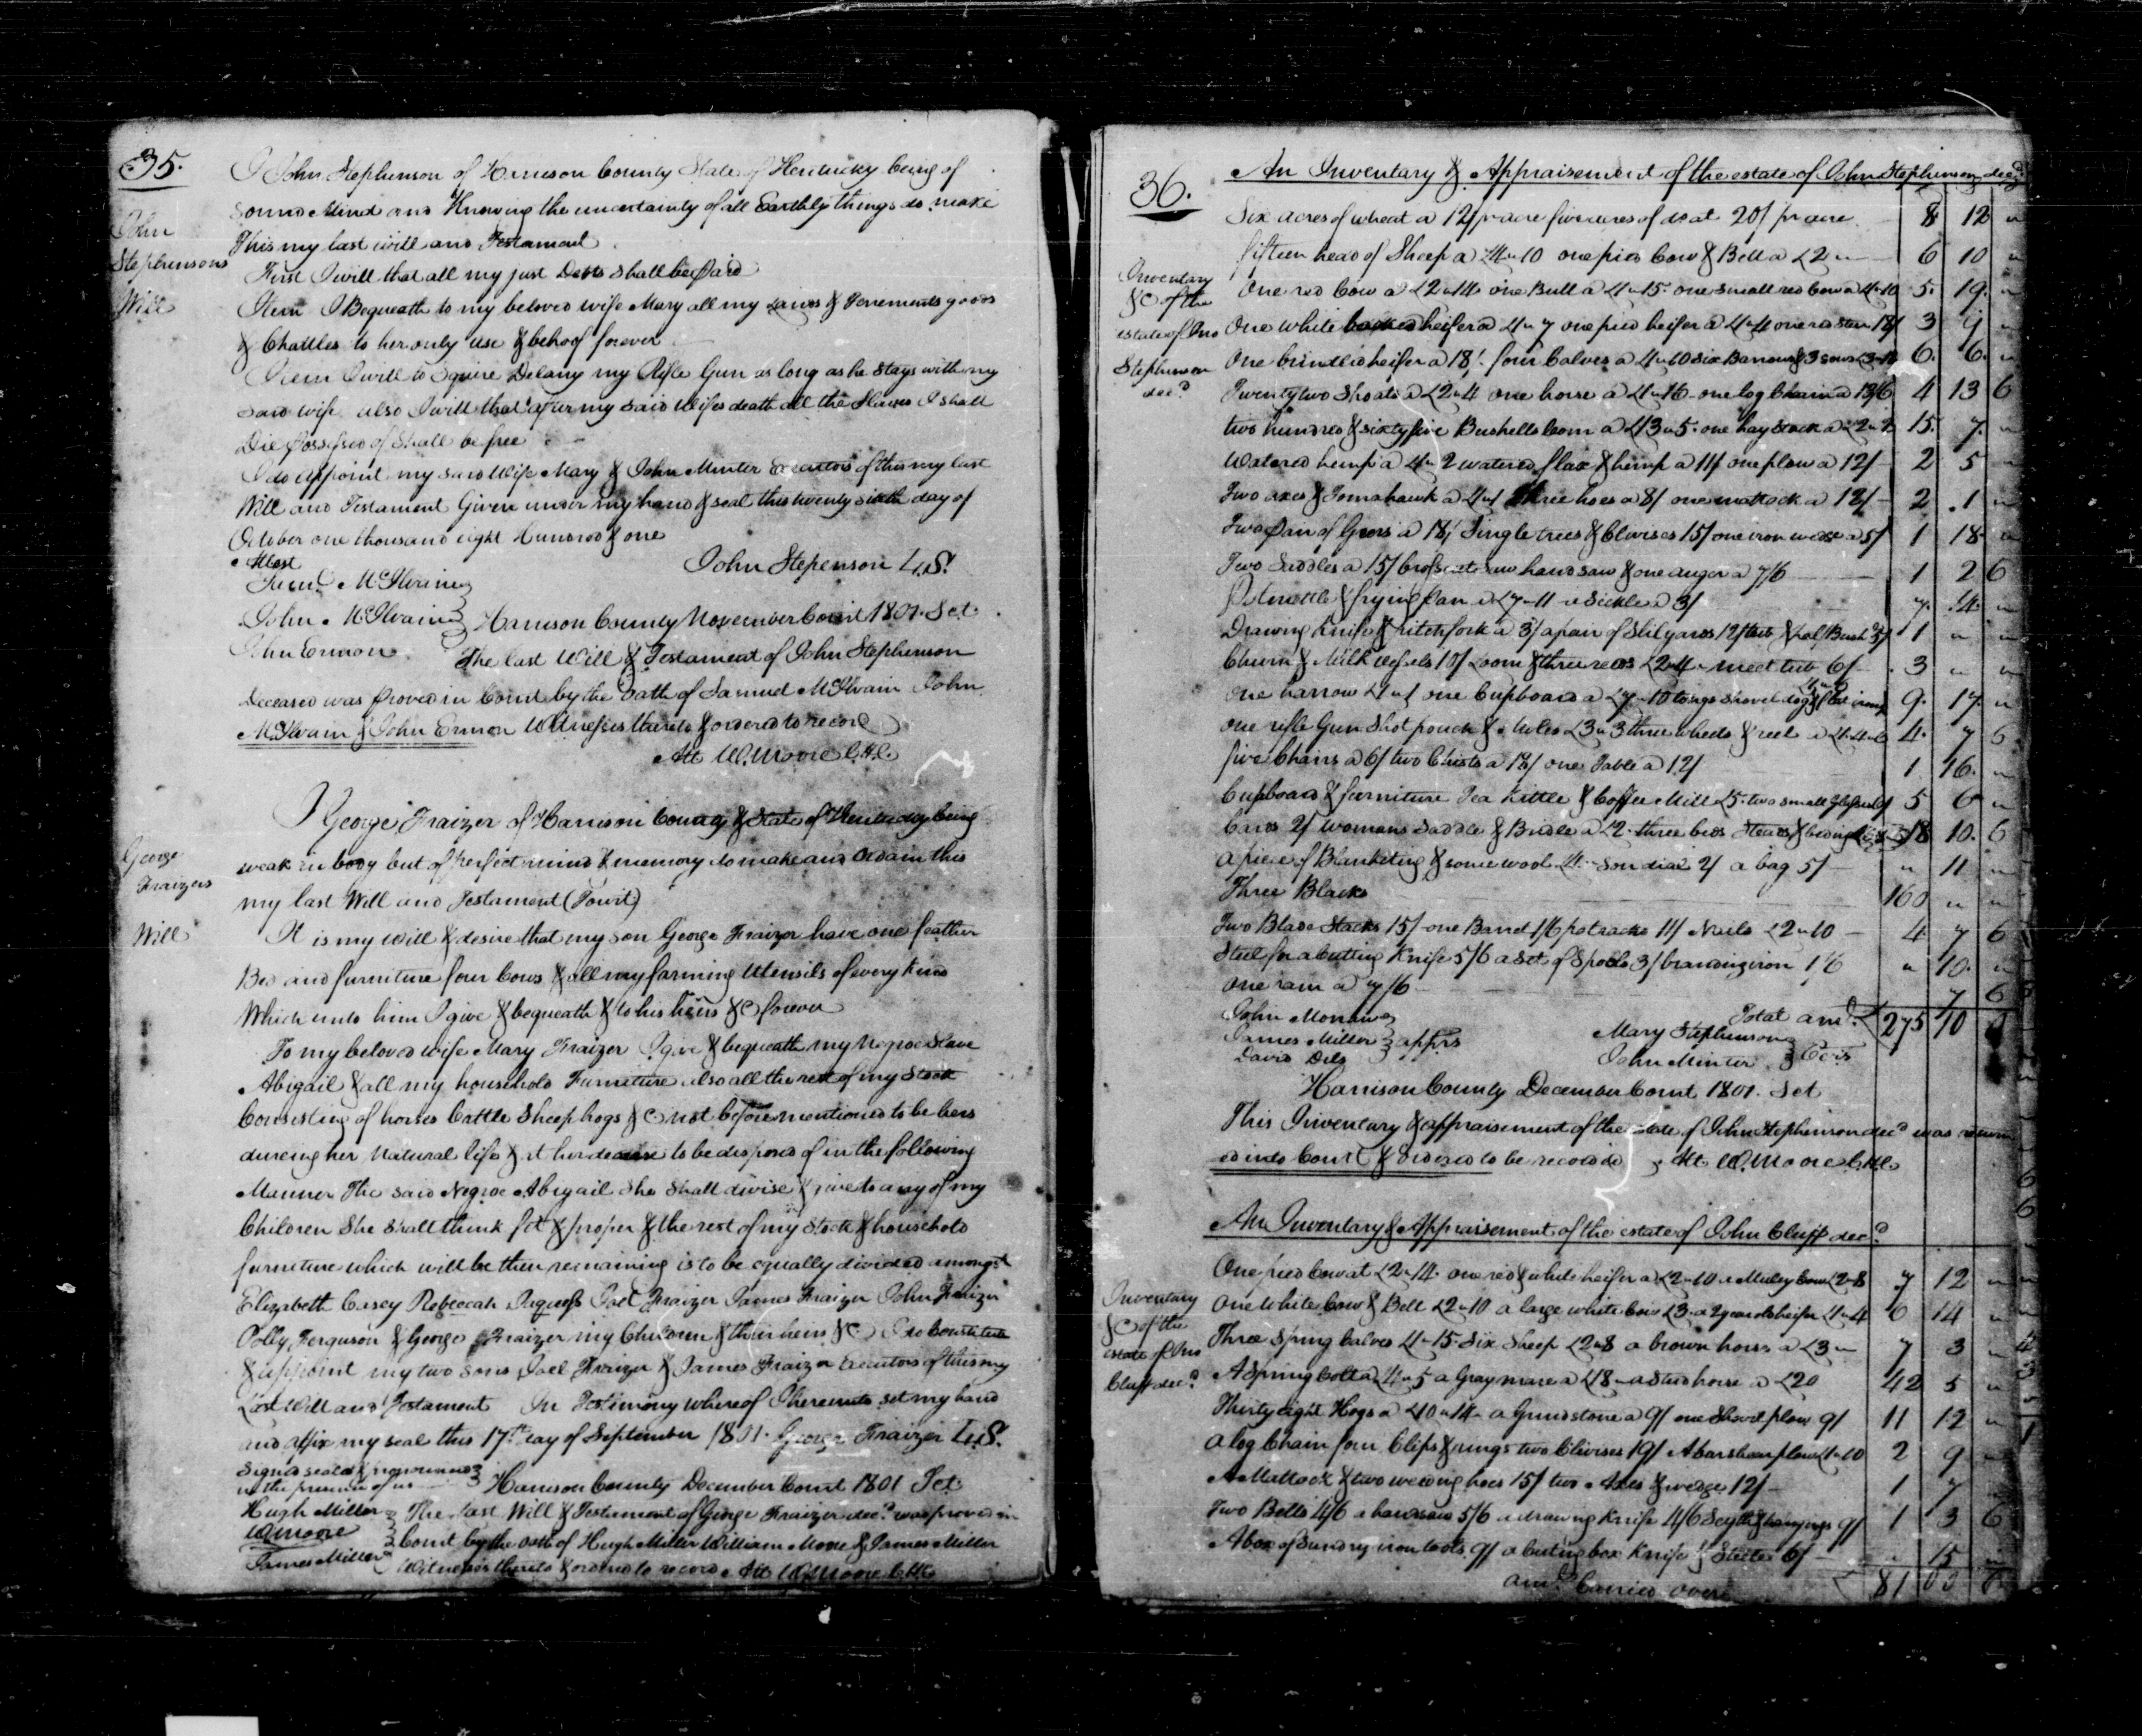 35.
John
Stephensons
Will
I John Stephenson of Harrison County State of Kentucky being of
sound Mind and Knowing the uncertainty of all Earthly things do make
This my last will and Testament
First I will that all my just Debts shall be paid
Item I Bequeath to my beloved wife Mary all my Lands & Tenements goods
& Chattles to her only use & behoof forever
Item I will to Squire Delany my Rifle Gun as long as he stays with my
said wife also I will that after my said Wifes death all the Slaves I shall
Die possessed of shall be free
I do appoint my said Wife Mary & John Minter Executors of this my last
Will and Testament Given under my hand & seal this twenty sixth day of
October one thousand eight hundred & one
Attest
John Stepenson L.S.
Saml McIlvain
John McIlvain
John Ermon
Harrison County November Court 1801. Sct.
The last Will & Testament of John Stephenson
Deceased was proved in Court by the oath of Samuel McIlvain John
McIlvain & John Ermon Witnesses thereto & ordered to record
Att W. Moore C.H.C.
George
Fraizers
Will
I George Fraizer of Harrison County & State of Kentucky being
weak in body but of perfect mind & memory do make and ordain this
my last Will and Testament (Towit)
It is my will & desire that my son George Fraizer have one feather
Bed and furniture four Cows & all my farming Utensils of every kind
Which unto him I give & bequeath & to his heirs &C forever
To my beloved wife Mary Fraizer I give & bequeath my Negroe Slave
Abigail & all my household Furniture also all the rest of my Stock
Consisting of horses Cattle Sheep hogs &C not before mentioned to be hers
dureing her Natural life & at her decease to be disposed of in the following
Manner The said Negroe Abigail she shall divise & give to any of my
Children She shall think fit & proper & the rest of my Stock & household
furniture which will be then remaining is to be equally divided amongst
Elizabeth Casey Rebeccah Jaquess Joel Fraizer James Fraizer John Fraizer
Polly Ferguson & George Fraizer my Children & their heirs &C I do Constitute
& appoint my two sons Joel Fraizer & James Fraizer Executors of this my
Last Will and Testament In Testimony whereof I hereunto set my hand
and affix my seal this 17th day of September 1801. George Fraizer L.S.
Signed sealed & pronounced
in the presence of us
Hugh Miller
W Moore
James Miller
Harrison County December Court 1801 Sct
The last Will & Testament of George Fraizer decd was proved in
Court by the oath of Hugh Miller William Moore & James Miller
Witnesses thereto & ordered to record Att W. Moore C.H.C.
36.
An Inventary & Appraisement of the estate of John Stephenson decd
Inventary
&C of the
estate of Jno
Stephenson
decd
Six acres of wheat a 12/ pr acre five acres of do at 20/ pr acre 8 12 "
fifteen head of Sheep a £4"10 one pied Cow & Bell a £2 " 6 10 "
One red Cow a £2"14 one Bull a £1"15 one small red Cow a £1"10 5. 19. "
One white heifer a £1"7 one pied heifer a £1"4 one red steer 18/ 3 9 "
One brindled heifer a 18/ four Calves a £1"10 Six Barrows & 3 sows 6. 6. "
Twenty two Shoats a £2"4 one horse a £1"16 one log Chain a 13/6 4 13 6
two hundred & sixty five Bushells Corn a £13"5. one hay Stack a £2"2 15. 7. "
Watered hemp a £1"2 watered flax & hemp a 11/ one plow a 12/ 2 5 "
Two axes & Tomahawk a £1"1 Three hoes a 8/ one mattock a 12/ 2 .1 "
Two pair of Gears a 18/ Single trees & Clevises 15/ one iron wedge a 5/ 1 18 "
Two Saddles a 15/ handsaw & one auger a 7/6 1 2 6
frying pan a Sickle a 3/ 7. 14. "
Drawing Knife & pitchfork a 3/ a pair of Stilyards 12/ 1 " "
Churn & Milk vessels 10/ Loom & three reeds £2"4 meet tub 6/ 3 " "
One harrow £1"1 one Cupboard a £7"10 tongs shovel 9. 17. "
one rifle Gun Shot pouch & £3"3 three wheels & reel a £1"4"6 4. 7 6
five Chairs a 6/ two Chests a 18/ one Table a 12/ 1 16. "
Cupboard & furniture Tea Kettle & Coffee Mill £5. two small 5 6 "
Cards 2/ Womans Saddle & Bridle a £2. three beds Steads & beding 18 10. 6
a piece of Blanketing & some wool sundial 2/ a bag 5/ " 11 "
Three Blacks 160 " "
Two Blade Stacks 15/ one Barrel 1/6 potracks 11/ Nails £2"10 4 7 6
Steel for a Cutting Knife 5/6 a Set of Spools 3/ branding iron 1/6 " 10. "
One ram a 7/6 7 6
Total amt. £275 10
John Morrow
James Miller
David Dils
apprs
Mary Stephenson
John Minter
Harrison County December Court 1801. Sct
This Inventary & appraisement of the estate of John Stephenson decd was return
ed into Court & ordered to be recorded Att W. Moore C.H.C.
An Inventary & Appraisement of the estate of John Cluff decd
Inventary
&C of the
estate of Jno
Cluff decd
One pied Cow at £2"14 one red & white heifer a £2"10 a Muley Cow £2"8 7 12 "
One White Cow & Bell £2"10 a large white Cow £3. a 2 year old heifer £1"4 6 14 "
Three Spring Calves £1"15 Six Sheep £2"8 a brown horse a £3 " 7 3 "
A Spring Colt a £4"5 a Gray mare a £18 " a Stud horse a £20 42 5 "
Thirty eight Hogs a £10"14 a Grindstone a 9/ one Shovel plow 9/ 11 12 "
a log Chain four Clips & rings two Clevises 19/ A barshear plow £1"10 2 9 "
A Mattock & two weeding hoes 15/ two Axes & wedge 12/ 1 7 "
Two Bells 4/6 a handsaw 5/6 a drawing Knife 4/6 Scythe & hangings 9/ 1 3 6
A box of Sundry iron tools 9/ a cuting box Knife & Steel 6/ " 15 "
amt. Carried over £ 81 00 6